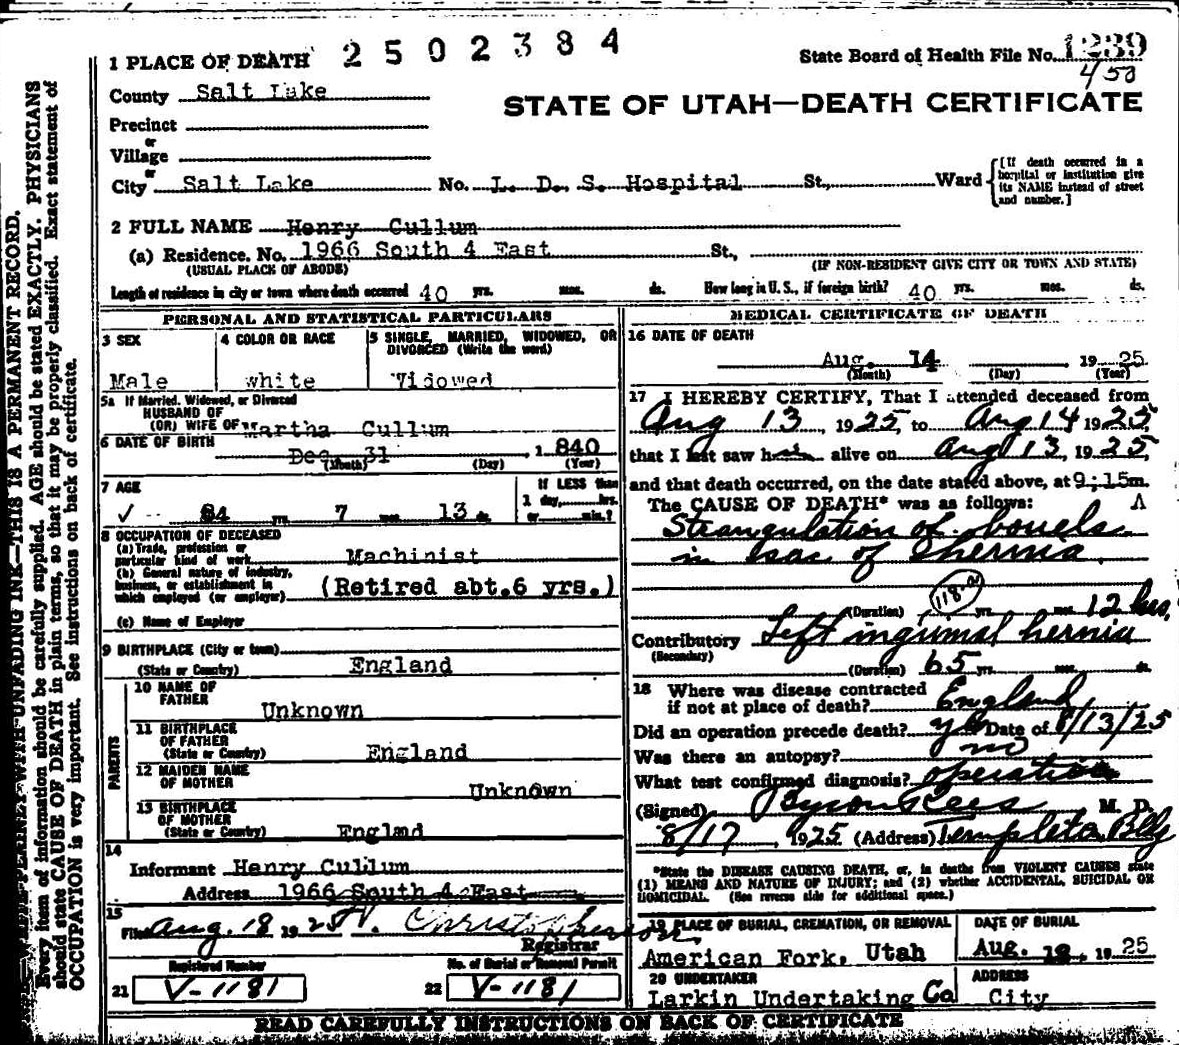 2502384
State Board of Health File No. 1239
450
1 PLACE OF DEATH
County Salt Lake
STATE OF UTAH—DEATH CERTIFICATE
Precinct
or
Village
or
City Salt Lake No. L. D. S. Hospital St., Ward
[If death occurred in a hospital or institution give its NAME instead of street and number.]
2 FULL NAME Henry Cullum
(a) Residence. No. 1966 South 4 East St.,
(USUAL PLACE OF ABODE) (IF NON-RESIDENT GIVE CITY OR TOWN AND STATE)
Length of residence in city or town where death occurred 40 yrs. mos. ds. How long in U. S., if foreign birth? 40 yrs. mos. ds.
PERSONAL AND STATISTICAL PARTICULARS
3 SEX
Male
4 COLOR OR RACE
white
5 SINGLE, MARRIED, WIDOWED, OR
DIVORCED (Write the word)
Widowed
5a If Married, Widowed, or Divorced
HUSBAND OF
(OR) WIFE OF Martha Cullum
6 DATE OF BIRTH
Dec 31, 1840
(Month) (Day) (Year)
7 AGE
84 yrs. 7 mos. 13 ds.
If LESS than
1 day, hrs.
or min.?
8 OCCUPATION OF DECEASED
(a) Trade, profession or
particular kind of work Machinist
(b) General nature of industry,
business, or establishment in
which employed (or employer) (Retired abt.6 yrs.)
(c) Name of Employer
9 BIRTHPLACE (City or town)
(State or Country) England
PARENTS
10 NAME OF
FATHER Unknown
11 BIRTHPLACE
OF FATHER
(State or Country) England
12 MAIDEN NAME
OF MOTHER Unknown
13 BIRTHPLACE
OF MOTHER
(State or Country) Englmd
14
Informant Henry Cullum
Address 1966 South 4 East
15
Filed Aug. 18 1925 Christopherson
Registrar
Registered Number
21 V-1181
No. of Burial or Removal Permit
22 V-1181
MEDICAL CERTIFICATE OF DEATH
16 DATE OF DEATH
Aug. 14 1925
(Month) (Day) (Year)
17 I HEREBY CERTIFY, That I attended deceased from
Aug 13, 1925, to Aug 14 1925,
that I last saw him alive on Aug 13, 1925,
and that death occurred, on the date stated above, at 9:15 m.
The CAUSE OF DEATH* was as follows: A
Strangulation of bowels
in sac of hernia
118-a
(Duration) yrs. mos. 12 hrs.
Contributory Left inguinal hernia
(Secondary)
(Duration) 65 yrs. mos. ds.
18 Where was disease contracted
if not at place of death? England
Did an operation precede death? yes Date of 8/13/25
Was there an autopsy? no
What test confirmed diagnosis? operation
(Signed) Byron Rees M. D.
8/17 1925 (Address) Templeton Bldg
*State the DISEASE CAUSING DEATH, or, in deaths from VIOLENT CAUSES state
(1) MEANS AND NATURE OF INJURY; and (2) whether ACCIDENTAL, SUICIDAL OR
HOMICIDAL. (See reverse side for additional space.)
19 PLACE OF BURIAL, CREMATION, OR REMOVAL
American Fork, Utah
DATE OF BURIAL
Aug. 18, 1925
20 UNDERTAKER
Larkin Undertaking Co
ADDRESS
City
READ CAREFULLY INSTRUCTIONS ON BACK OF CERTIFICATE
WITH UNFADING INK—THIS IS A PERMANENT RECORD.
Every item of information should be carefully supplied. AGE should be stated EXACTLY. PHYSICIANS
should state CAUSE OF DEATH in plain terms, so that it may be properly classified. Exact statement of
OCCUPATION is very important. See instructions on back of certificate.